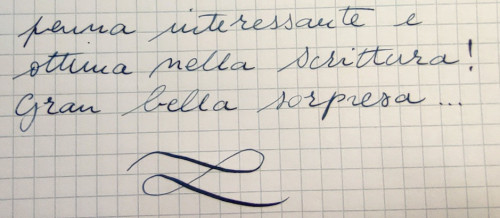 penna interessante e
ottima nella scrittura!
Gran bella sorpresa...